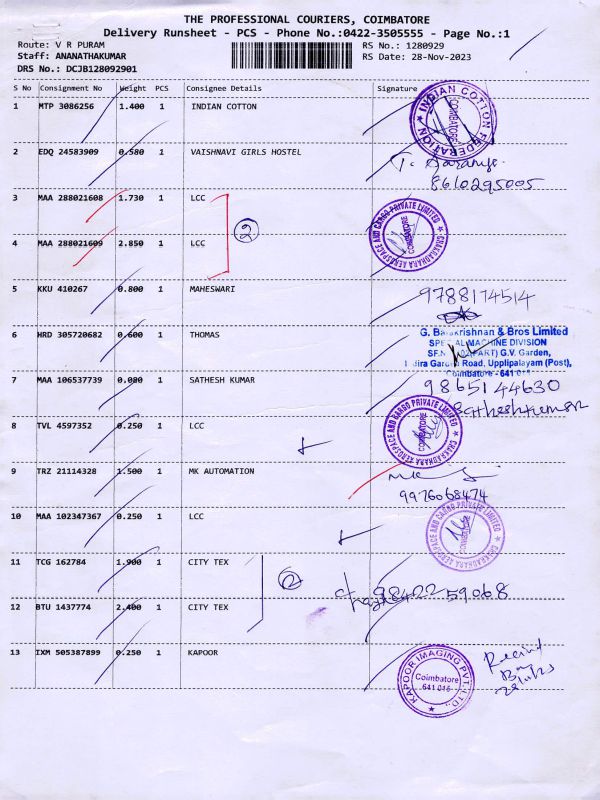 THE PROFESSIONAL COURIERS, COIMBATORE
Delivery Runsheet - PCS - Phone No.:0422-3505555 - Page No.:1
Route: V R PURAM
RS No.: 1280929
Staff: ANANATHAKUMAR
RS Date: 28-Nov-2023
DRS No.: DCJB128092901
S No Consignment No Weight PCS Consignee Details Signature
1 MTP 3086256 1.400 1 INDIAN COTTON
INDIAN COTTON FEDERATION
COIMBATORE
2 EDQ 24583909 0.580 1 VAISHNAVI GIRLS HOSTEL
8610295005
3 MAA 288021608 1.730 1 LCC
2
CHAKRADHARA AEROSPACE AND CARGO PRIVATE LIMITED
COIMBATORE
4 MAA 288021609 2.850 1 LCC
5 KKU 410267 0.800 1 MAHESWARI
9788174514
6 HRD 305720682 0.600 1 THOMAS
G. Balakrishnan & Bros Limited
SPECIAL MACHINE DIVISION
G.V. Garden,
Indira Garden Road, Upplipalayam (Post),
Coimbatore - 641 015
7 MAA 106537739 0.080 1 SATHESH KUMAR
9865144630
Satheshkumar
8 TVL 4597352 0.250 1 LCC
CHAKRADHARA AEROSPACE AND CARGO PRIVATE LIMITED
COIMBATORE
9 TRZ 21114328 1.500 1 MK AUTOMATION
9976068474
10 MAA 102347367 0.250 1 LCC
CHAKRADHARA AEROSPACE AND CARGO PRIVATE LIMITED
Coimbatore
11 TCG 162784 1.900 1 CITY TEX
2
9842259068
12 BTU 1437774 2.400 1 CITY TEX
13 IXM 505387899 0.250 1 KAPOOR
KAPOOR IMAGING PVT. LTD.
Coimbatore
641 016
28/11/23